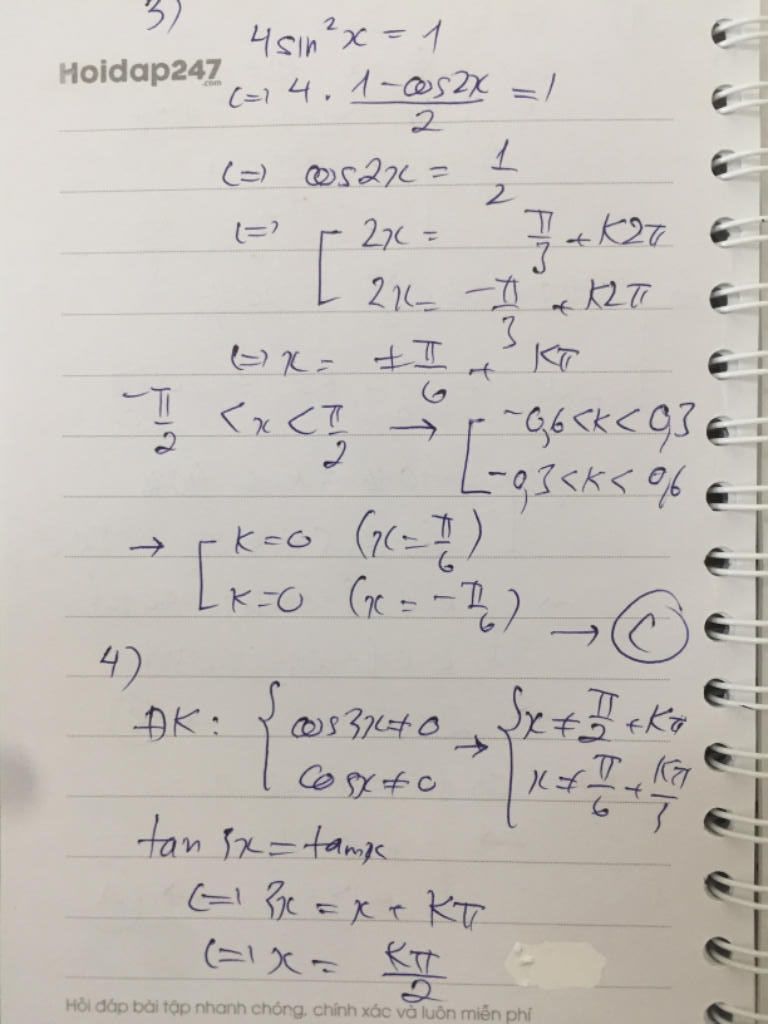 3)
4sin²x = 1
Hoidap247.com
<=> 4 . (1-cos2x)/2 = 1
<=> cos2x = 1/2
<=> [ 2x = π/3 + K2π
2x = -π/3 + K2π
<=> x = ±π/6 + Kπ
-π/2 < x < π/2 → [ -0,6<K<0,3
-0,3<K<0,6
→ [ K=0 (x=π/6)
K=0 (x=-π/6) → C
4)
ĐK: { cos3x≠0 → { x≠π/2+Kπ
Cosx≠0 x≠π/6+Kπ/3
tan 3x = tanx
<=> 3x = x + Kπ
<=> x = Kπ/2
Hỏi đáp bài tập nhanh chóng, chính xác và luôn miễn phí